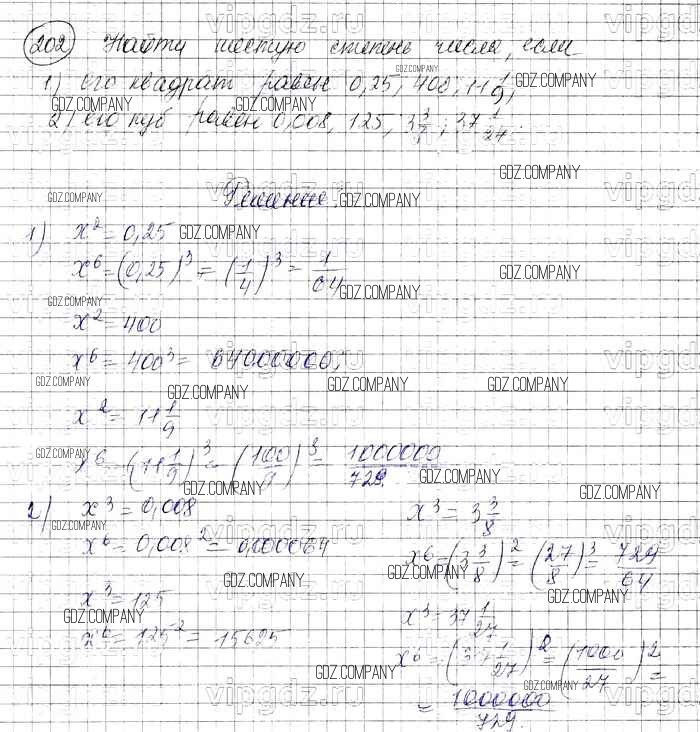 202 Найти шестую степень числа, если
1) его квадрат равен 0,25; 400; 11 1/9;
2) его куб равен 0,008; 125; 3 3/8; 37 1/27.
Решение.
1) x² = 0,25
x⁶ = (0,25)³ = (1/4)³ = 1/64
x² = 400
x⁶ = 400³ = 64000000;
x² = 11 1/9
x⁶ = (11 1/9)³ = (100/9)³ = 1000000/729.
2) x³ = 0,008
x⁶ = 0,008² = 0,000064
x³ = 125
x⁶ = 125² = 15625
x³ = 3 3/8
x⁶ = (3 3/8)² = (27/8)³ = 729/64
x³ = 37 1/27
x⁶ = (37 1/27)² = (1000/27)² =
= 1000000/729.
GDZ.COMPANY
vipgdz.ru